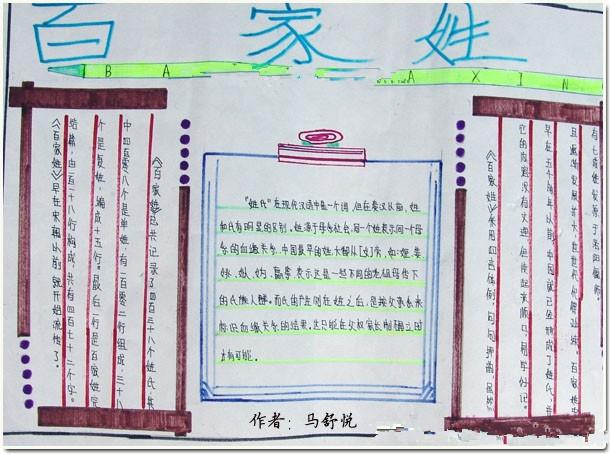 百 家 姓
B A A X I N
《百家姓》已共记录了四百三十八个姓氏,其
中四百零八个是单姓,有一百零二行组成,三十八
个是复姓,编成十五行。最后一行是百家姓完
结篇,由一百一十八行构成,共有四百七十二个字。
《百家姓》早在宋朝以前就开始流传了。
“姓氏”在现代汉语中是一个词,但在秦汉以前,姓
和氏有明显的区别。姓源于母系社会,同一个姓表示同一个母
系的血缘关系。中国最早的姓,大都从“女”旁,如:姬、姜、
姒、妫、嬴等,表示这是一些不同的老祖母传下
的氏族人群。而氏的产生则在姓之后,是按父系来
标识血缘关系的结果,这只能在父权家长制确立之时
才有可能。
有七成姓始源于河南
且逐渐发展为大,在世代
早在五千年以前,中国就已经形成了姓氏,并
它的成就没有文理,但读起来顺口,易学好记。
《百家姓》采用四言体例,句句押韵,虽然
作者:马舒悦